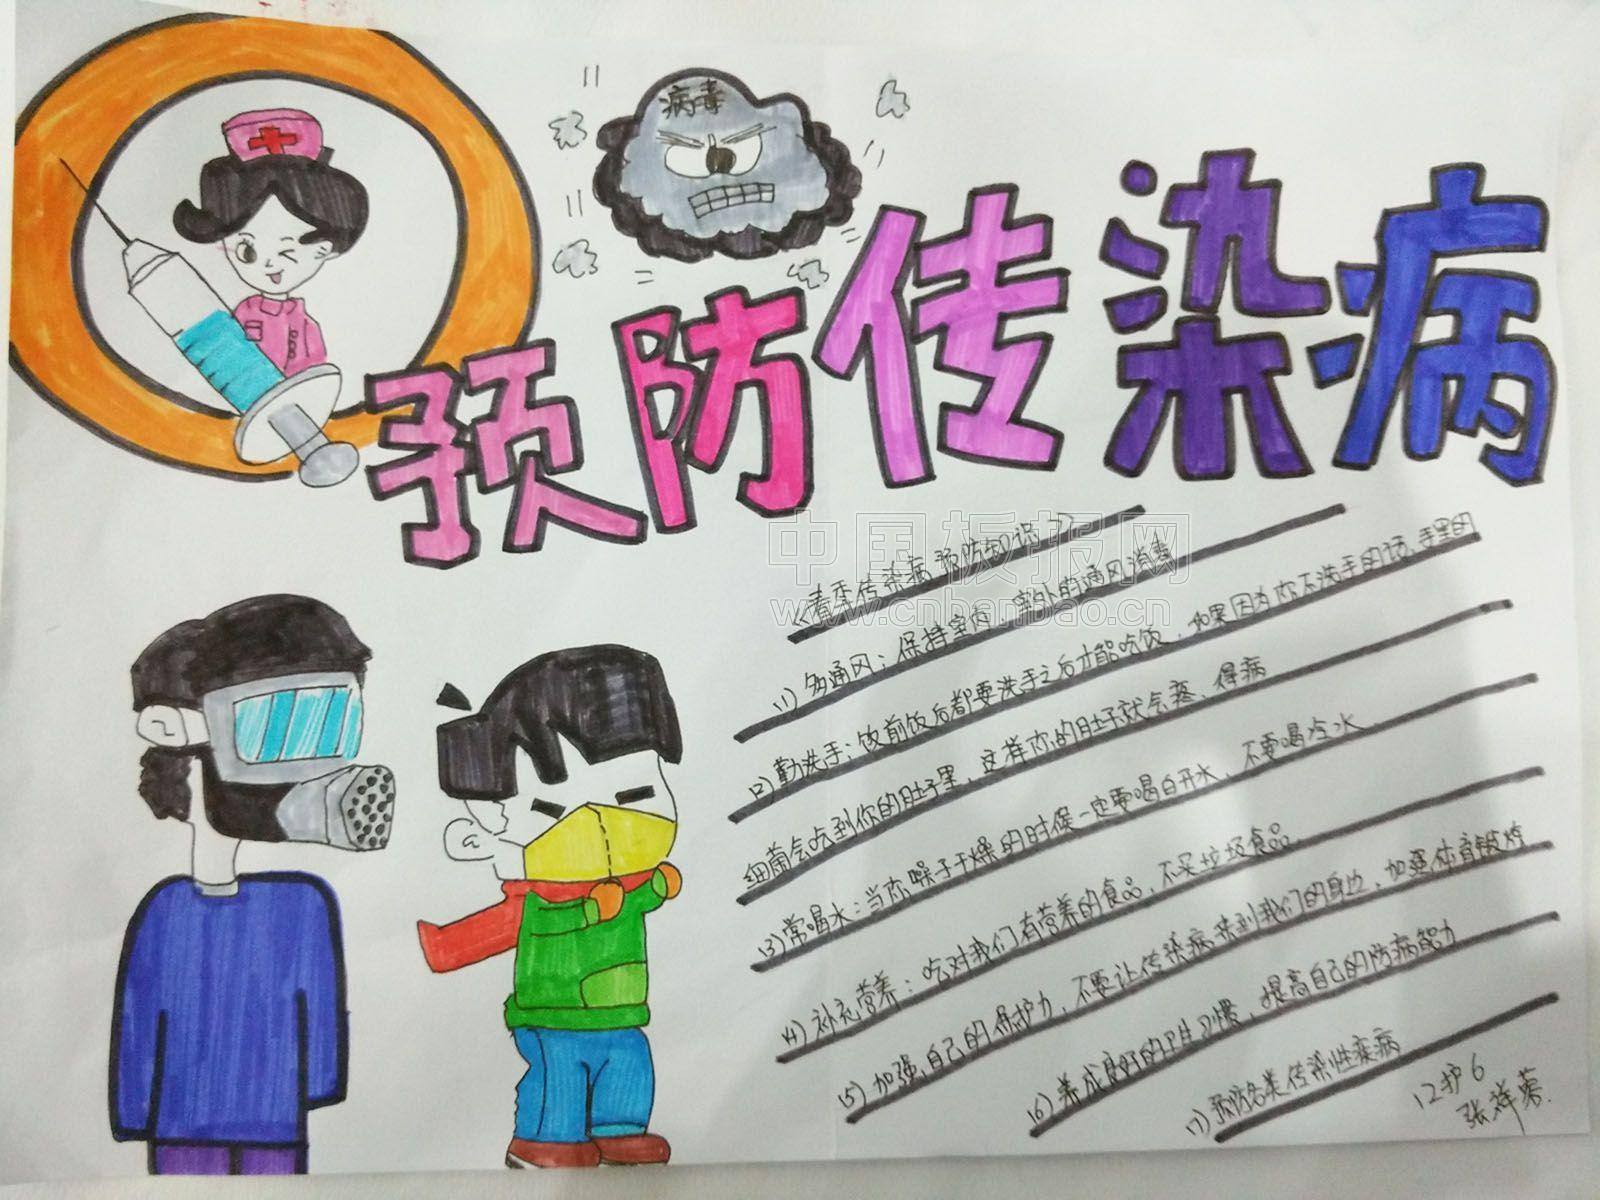 病毒
预防传染病
中国板报网
www.cnbanbao.cn
《春季传染病预防知识》
(1)多通风：保持室内、室外的通风消毒
(2)勤洗手：饭前饭后都要洗手之后才能吃饭，如果因为你不洗手的话，手里的
细菌会吃到你的肚子里，这样你的肚子就会疼、得病
(3)常喝水：当你喉子干燥的时候一定要喝白开水，不要喝冷水
(4)补充营养：吃对我们有营养的食品，不买垃圾食品
(5)加强自己的保护力，不要让传染病来到我们的身边，加强体育锻炼
(6)养成良好的卫生习惯，提高自己的防病能力
(7)预防各类传染性疾病
12护6
张祥蓉